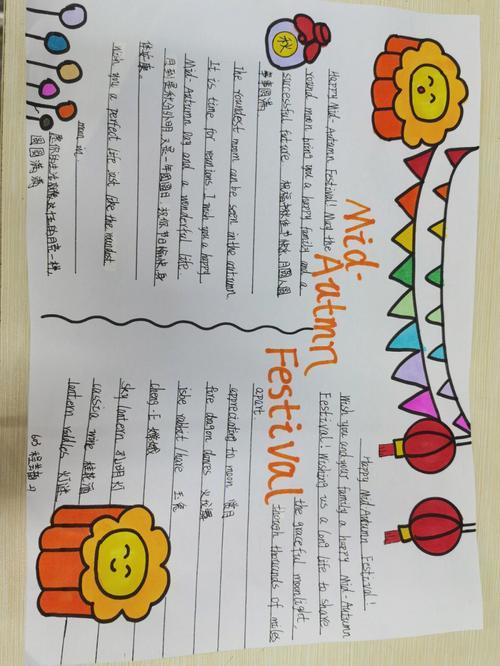 Mid-
Autmn
Festival
秋
Happy Mid-Autumn Festival! May the
round moon bring you a happy family and a
successful future.
事事圆满
The roundest moon can be seen in the autumn
It is time for reunions. I wish you a happy
Mid-Autumn Day and a wonderful life.
月到是秋分外明 又是一年团圆日 祝你节日愉快 身
体安康。
Wish you a perfect life just like the roundest
moon in
圆圆满满
Happy Mid Autumn Festival!
Wish you and your family a happy Mid-Autumn
Festival! Wishing us a long life to share
the graceful moonlight,
though thousands of miles
apart
appreciated to moon 赏月
fire dragon dances 火龙舞
jade rabbit/hare 玉兔
Cheng-E 嫦娥
sky lantern 孔明灯
cassia wine 桂花酒
lantern riddles 灯谜